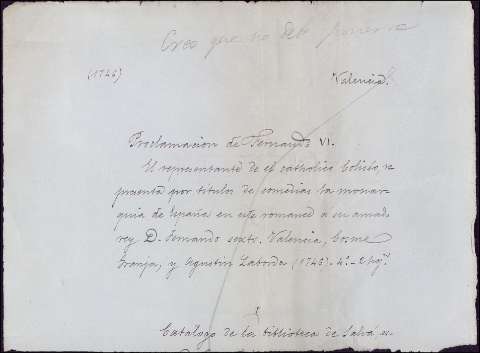 Creo que no debe ponerse
(1746) Valencia.
Proclamacion de Fernando VI.
El representante de el catholico Coliseo, re
presenta por titulos de comedias la monar
quia de España en este romance a su amado
rey D. Fernando sexto. Valencia, Cosme
Granja, y Agustin Laborda (1746)-4º-2 hojs.
Catálogo de la biblioteca de Salvá,